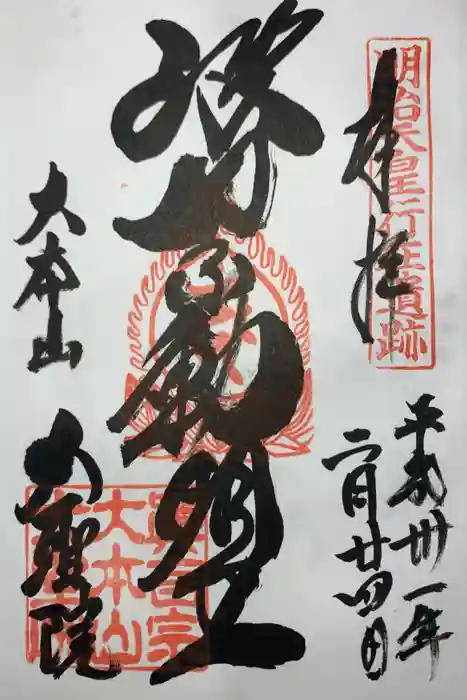 明治天皇行在遺跡
奉拝
平成卅一年
二月廿四日
波切不動明王
大本山
大聖院
眞言宗
大本山
大聖院